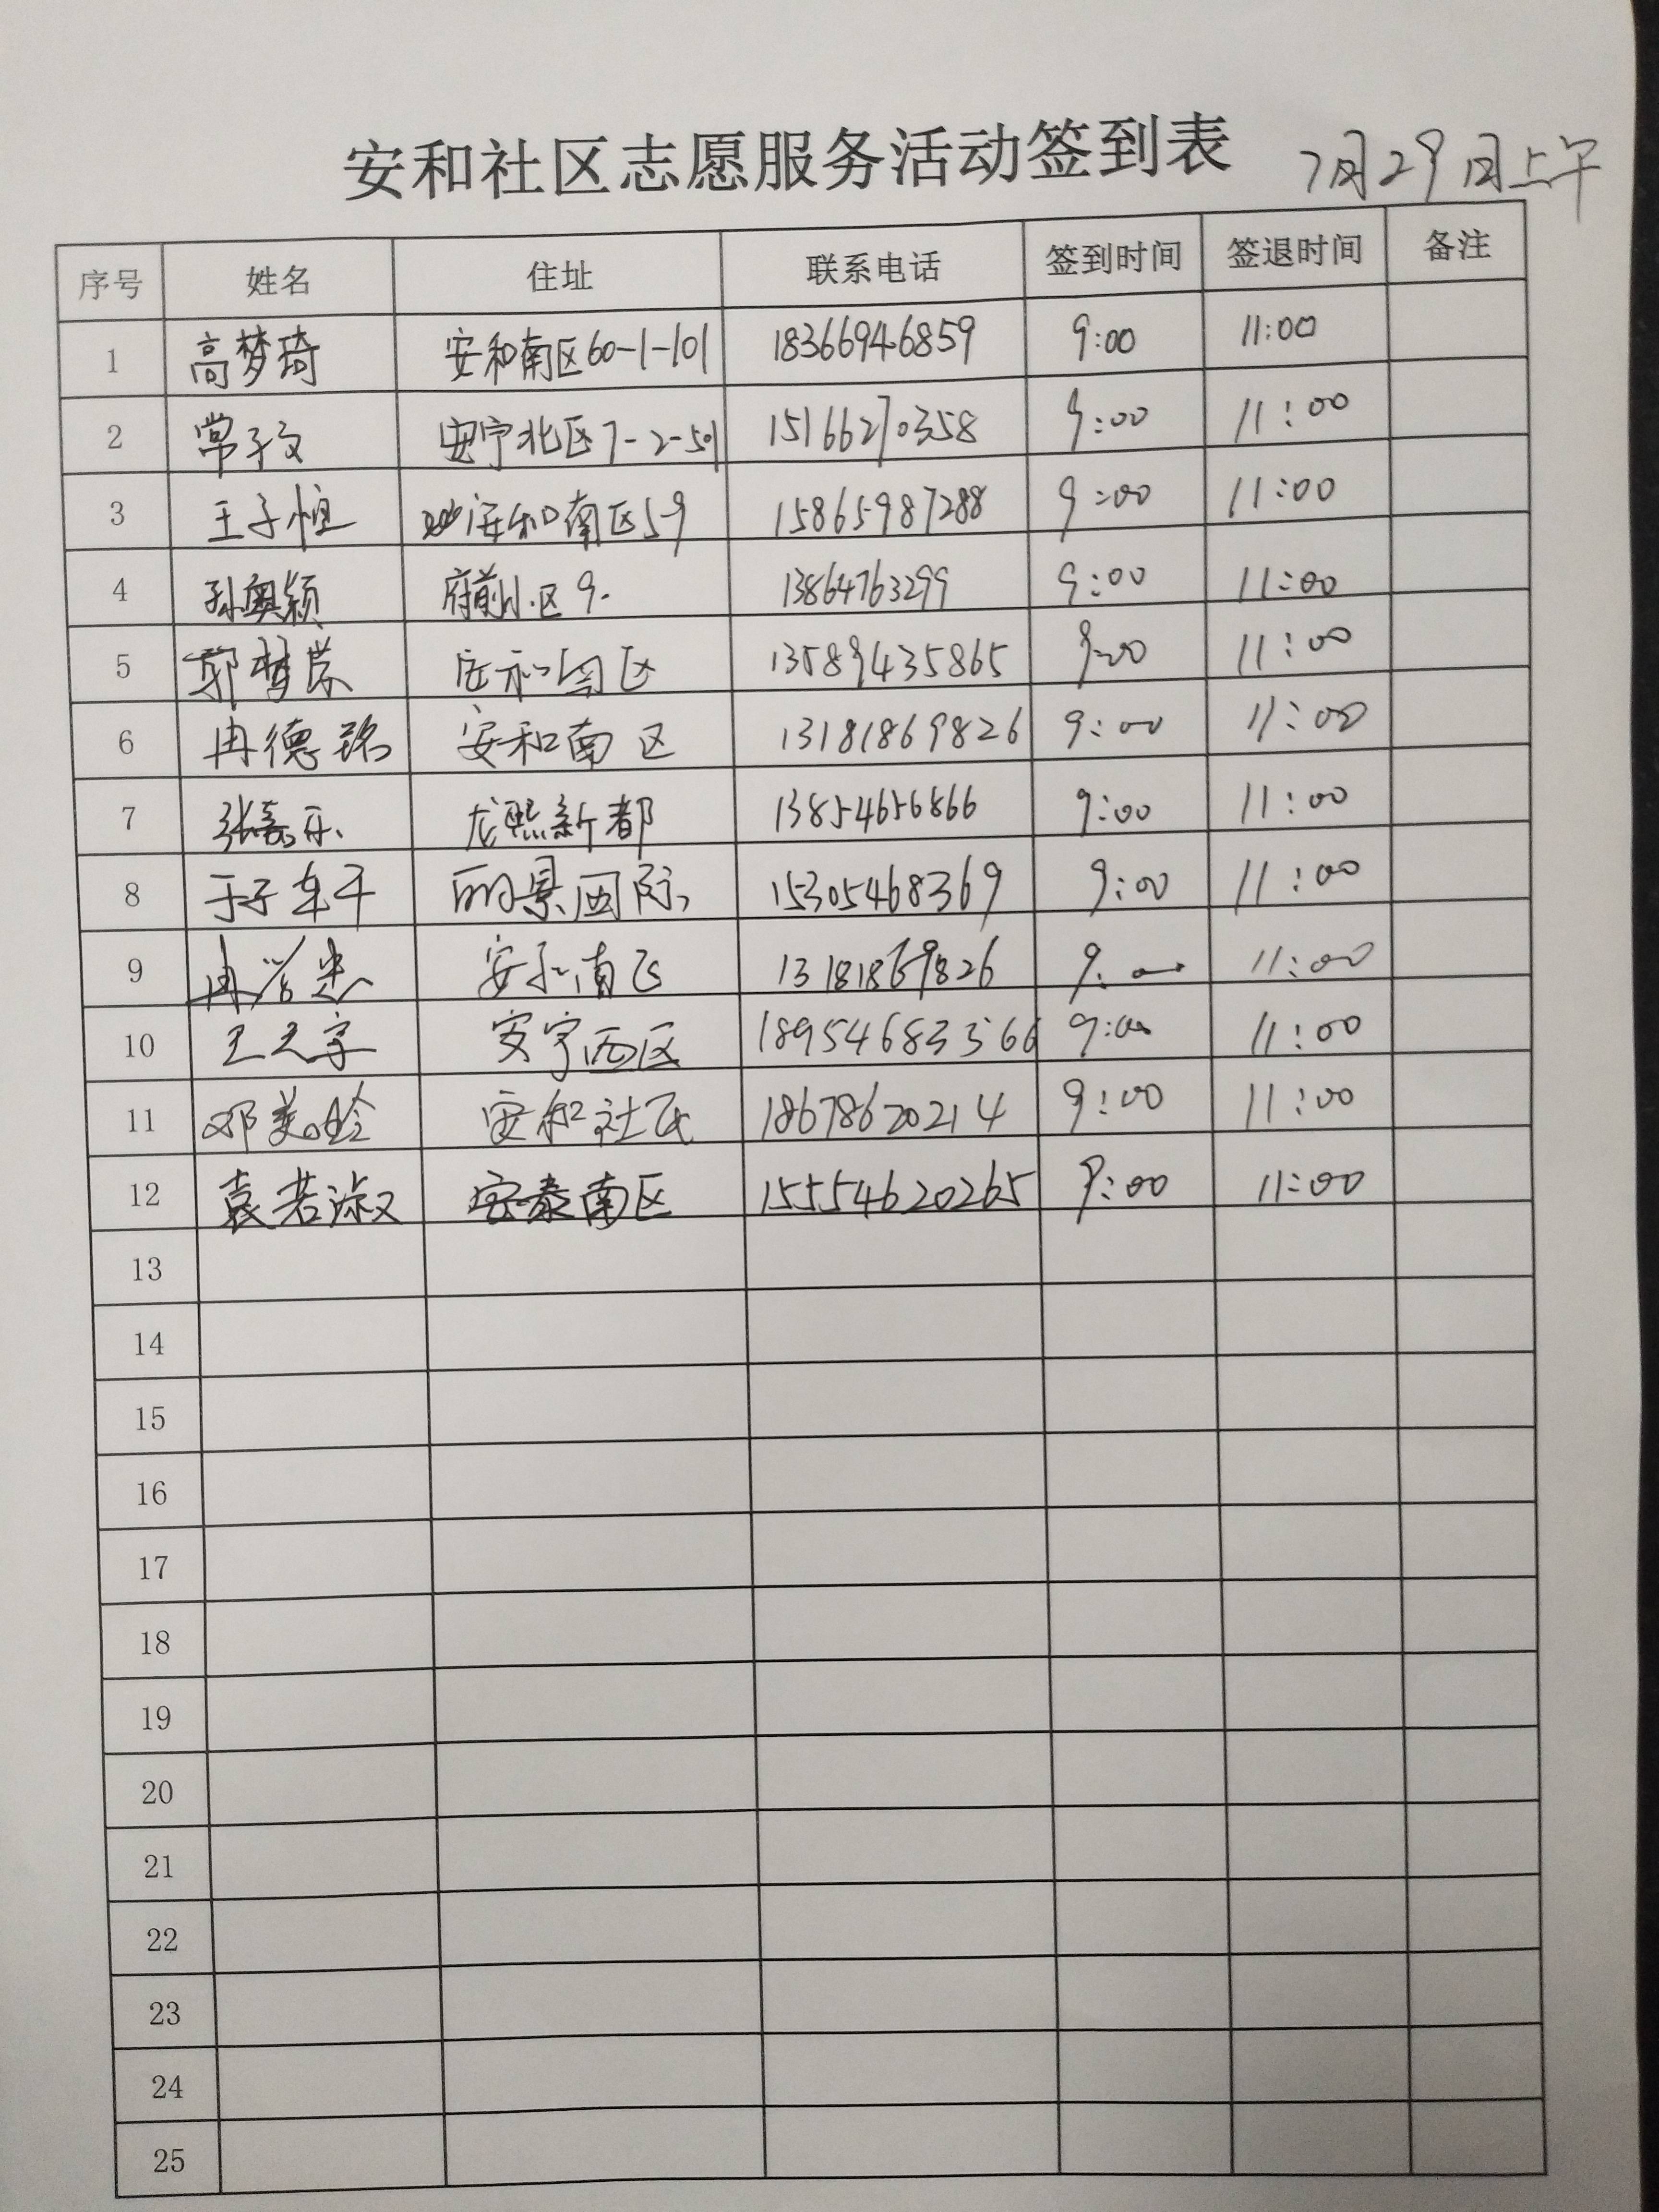 安和社区志愿服务活动签到表 7月29日上午
序号 姓名 住址 联系电话 签到时间 签退时间 备注
1 高梦琦 安和南区60-1-101 18366946859 9:00 11:00
2 常子文 安宁北区7-2-501 15166270358 9:00 11:00
3 王子恒 安和南区59 15865987288 9:00 11:00
4 孙奥颖 府前小区9. 13864763299 9:00 11:00
5 郭梦 安和 区 13589435865 9:00 11:00
6 冉德铭 安和南区 13181869826 9:00 11:00
7 张嘉乐 龙熙新都 13854656866 9:00 11:00
8 于子 丽景国际 15305468369 9:00 11:00
9 冉 安和南区 13181869826 9: 11:00
10 王 宇 安宁西区 18954683366 9:00 11:00
11 邓美玲 安和社区 18678620214 9:00 11:00
12 袁若淑 安泰南区 15554620265 9:00 11:00
13
14
15
16
17
18
19
20
21
22
23
24
25